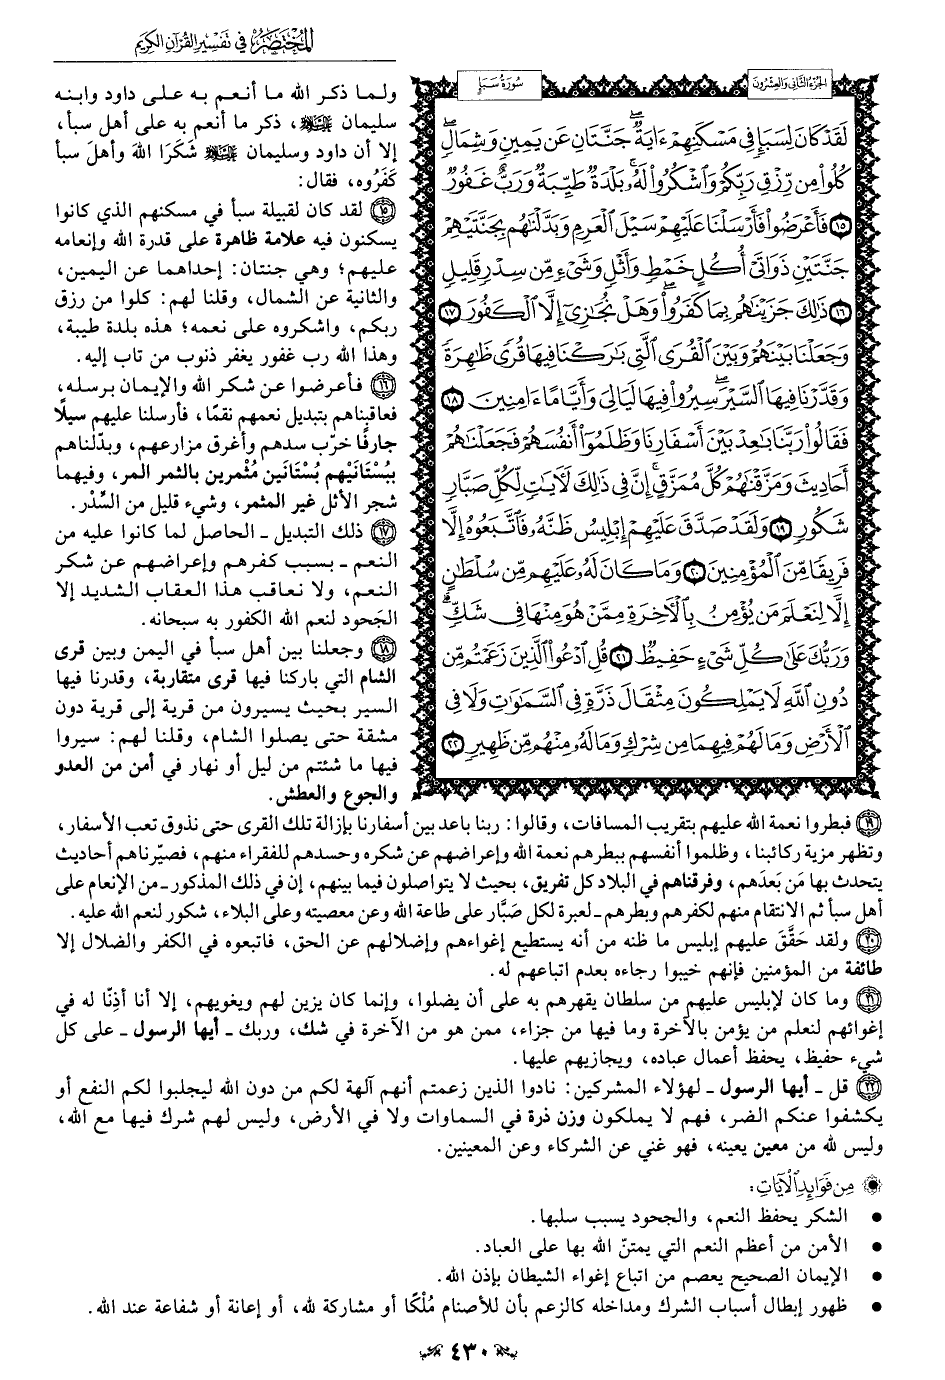 المختصر في تفسير القرآن الكريم
الجزء الثاني والعشرون
سورة سبإ
لَقَدْ كَانَ لِسَبَإٍ فِي مَسْكَنِهِمْ ءَايَةٌ ۖ جَنَّتَانِ عَن يَمِينٍ وَشِمَالٍ ۖ
كُلُوا۟ مِن رِّزْقِ رَبِّكُمْ وَٱشْكُرُوا۟ لَهُۥ ۚ بَلْدَةٌ طَيِّبَةٌ وَرَبٌّ غَفُورٌ
١٥ فَأَعْرَضُوا۟ فَأَرْسَلْنَا عَلَيْهِمْ سَيْلَ ٱلْعَرِمِ وَبَدَّلْنَٰهُم بِجَنَّتَيْهِمْ
جَنَّتَيْنِ ذَوَاتَىْ أُكُلٍ خَمْطٍ وَأَثْلٍ وَشَىْءٍ مِّن سِدْرٍ قَلِيلٍ
١٦ ذَٰلِكَ جَزَيْنَٰهُم بِمَا كَفَرُوا۟ ۖ وَهَلْ نُجَٰزِىٓ إِلَّا ٱلْكَفُورَ ١٧
وَجَعَلْنَا بَيْنَهُمْ وَبَيْنَ ٱلْقُرَى ٱلَّتِى بَٰرَكْنَا فِيهَا قُرًى ظَٰهِرَةً
وَقَدَّرْنَا فِيهَا ٱلسَّيْرَ ۖ سِيرُوا۟ فِيهَا لَيَالِىَ وَأَيَّامًا ءَامِنِينَ ١٨
فَقَالُوا۟ رَبَّنَا بَٰعِدْ بَيْنَ أَسْفَارِنَا وَظَلَمُوٓا۟ أَنفُسَهُمْ فَجَعَلْنَٰهُمْ
أَحَادِيثَ وَمَزَّقْنَٰهُمْ كُلَّ مُمَزَّقٍ ۚ إِنَّ فِى ذَٰلِكَ لَءَايَٰتٍ لِّكُلِّ صَبَّارٍ
شَكُورٍ ١٩ وَلَقَدْ صَدَّقَ عَلَيْهِمْ إِبْلِيسُ ظَنَّهُۥ فَٱتَّبَعُوهُ إِلَّا
فَرِيقًا مِّنَ ٱلْمُؤْمِنِينَ ٢٠ وَمَا كَانَ لَهُۥ عَلَيْهِم مِّن سُلْطَٰنٍ
إِلَّا لِنَعْلَمَ مَن يُؤْمِنُ بِٱلْءَاخِرَةِ مِمَّنْ هُوَ مِنْهَا فِى شَكٍّ ۗ
وَرَبُّكَ عَلَىٰ كُلِّ شَىْءٍ حَفِيظٌ ٢١ قُلِ ٱدْعُوا۟ ٱلَّذِينَ زَعَمْتُم مِّن
دُونِ ٱللَّهِ لَا يَمْلِكُونَ مِثْقَالَ ذَرَّةٍ فِى ٱلسَّمَٰوَٰتِ وَلَا فِى
ٱلْأَرْضِ وَمَا لَهُمْ فِيهِمَا مِن شِرْكٍ وَمَا لَهُۥ مِنْهُم مِّن ظَهِيرٍ ٢٢
ولـما ذكر الله ما أنعم به على داود وابنه
سليمان ﷺ، ذكر ما أنعم به على أهل سبأ،
إلا أن داود وسليمان ﷺ شَكَرَا اللهَ وأهلَ سبأ
كَفَرُوه، فقال:
١٥ لقد كان لقبيلة سبأ في مسكنهم الذي كانوا
يسكنون فيه علامة ظاهرة على قدرة الله وإنعامه
عليهم؛ وهي جنتان: إحداهما عن اليمين،
والثانية عن الشمال، وقلنا لهم: كلوا من رزق
ربكم، واشكروه على نعمه؛ هذه بلدة طيبة،
وهذا الله رب غفور يغفر ذنوب من تاب إليه.
١٦ فأعرضوا عن شكر الله والإيمان برسله،
فعاقبناهم بتبديل نعمهم نقمًا، فأرسلنا عليهم سيلًا
جارفًا خرّب سدهم وأغرق مزارعهم، وبدّلناهم
ببُسْتَانَيْهم بُسْتَانَين مُثْمرين بالثمر المر، وفيهما
شجر الأثل غير المثمر، وشيء قليل من السِّدْر.
١٧ ذلك التبديل ـ الحاصل لما كانوا عليه من
النعم ـ بسبب كفرهم وإعراضهم عن شكر
النعم، ولا نعاقب هذا العقاب الشديد إلا
الجَحود لنعم الله الكفور به سبحانه.
١٨ وجعلنا بين أهل سبأ في اليمن وبين قرى
الشام التي باركنا فيها قرى متقاربة، وقدرنا فيها
السير بحيث يسيرون من قرية إلى قرية دون
مشقة حتى يصلوا الشام، وقلنا لهم: سيروا
فيها ما شئتم من ليل أو نهار في أمن من العدو
والجوع والعطش.
١٩ فبطروا نعمة الله عليهم بتقريب المسافات، وقالوا: ربنا باعد بين أسفارنا بإزالة تلك القرى حتى نذوق تعب الأسفار،
وتظهر مزية ركائبنا، وظلموا أنفسهم ببطرهم نعمة الله وإعراضهم عن شكره وحسدهم للفقراء منهم، فصيّرناهم أحاديث
يتحدث بها مَن بَعدَهم، وفرقناهم في البلاد كل تفريق، بحيث لا يتواصلون فيما بينهم، إن في ذلك المذكور ـ من الإنعام على
أهل سبأ ثم الانتقام منهم لكفرهم وبطرهم ـ لعبرة لكل صَبَّار على طاعة الله وعن معصيته وعلى البلاء، شكور لنعم الله عليه.
٢٠ ولقد حَقَّقَ عليهم إبليس ما ظنه من أنه يستطيع إغواءهم وإضلالهم عن الحق، فاتبعوه في الكفر والضلال إلا
طائفة من المؤمنين فإنهم خيبوا رجاءه بعدم اتباعهم له.
٢١ وما كان لإبليس عليهم من سلطان يقهرهم به على أن يضلوا، وإنما كان يزين لهم ويغويهم، إلا أنا أذِنّا له في
إغوائهم لنعلم من يؤمن بالآخرة وما فيها من جزاء، ممن هو من الآخرة في شك، وربك ـ أيها الرسول ـ على كل
شيء حفيظ، يحفظ أعمال عباده، ويجازيهم عليها.
٢٢ قل ـ أيها الرسول ـ لهؤلاء المشركين: نادوا الذين زعمتم أنهم آلهة لكم من دون الله ليجلبوا لكم النفع أو
يكشفوا عنكم الضر، فهم لا يملكون وزن ذرة في السماوات ولا في الأرض، وليس لهم شرك فيها مع الله،
وليس لله من معين يعينه، فهو غني عن الشركاء وعن المعينين.
من فوائد الآيات:
• الشكر يحفظ النعم، والجحود يسبب سلبها.
• الأمن من أعظم النعم التي يمتنّ الله بها على العباد.
• الإيمان الصحيح يعصم من اتباع إغواء الشيطان بإذن الله.
• ظهور إبطال أسباب الشرك ومداخله كالزعم بأن للأصنام مُلْكًا أو مشاركة لله، أو إعانة أو شفاعة عند الله.
٤٣٠